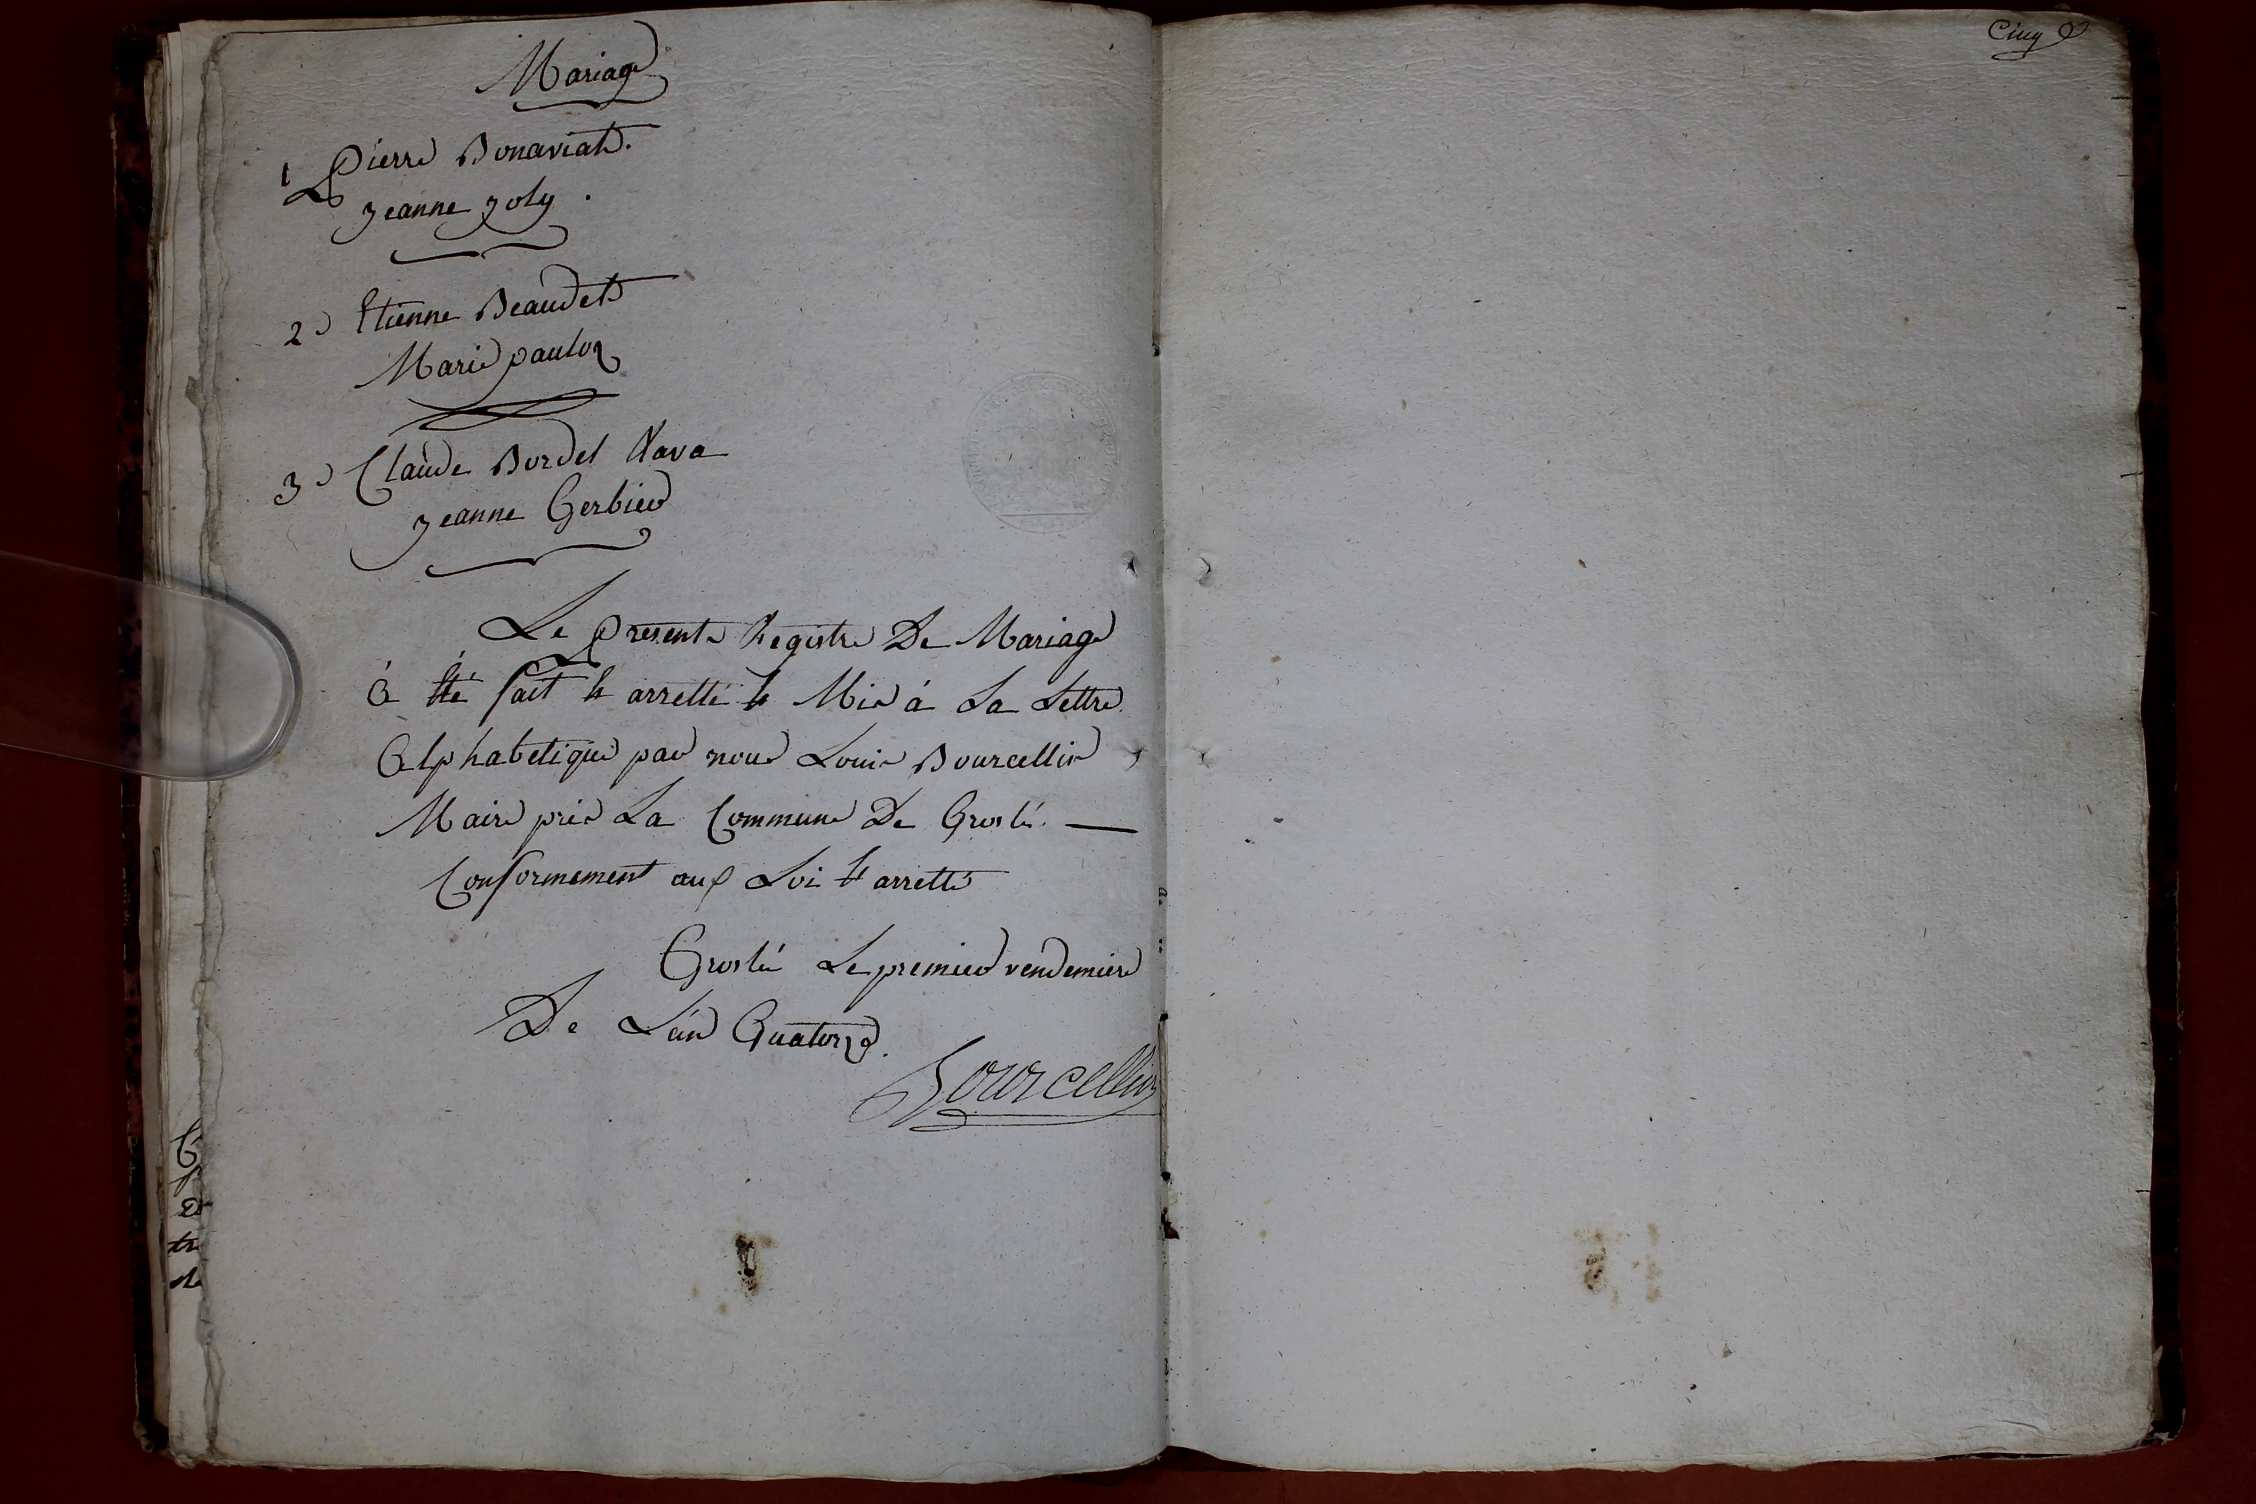 Mariage
1 Pierre Bonaviat.
jeanne joly.
2e Etienne Beaudet
Marie pauloz
3e Claude Bordel Nava
jeanne Gerbier
Le present Registre De Mariage
a Eté fait Et arretté Et Mis á La Lettre
Alphabetique par nous Louis Bourcellin
Maire près La Commune De Groslé
Conformement aux Loi Et arretté
Groslé Le premier vendemiere
De L'an Quatorze.
Bourcellin
Cinq